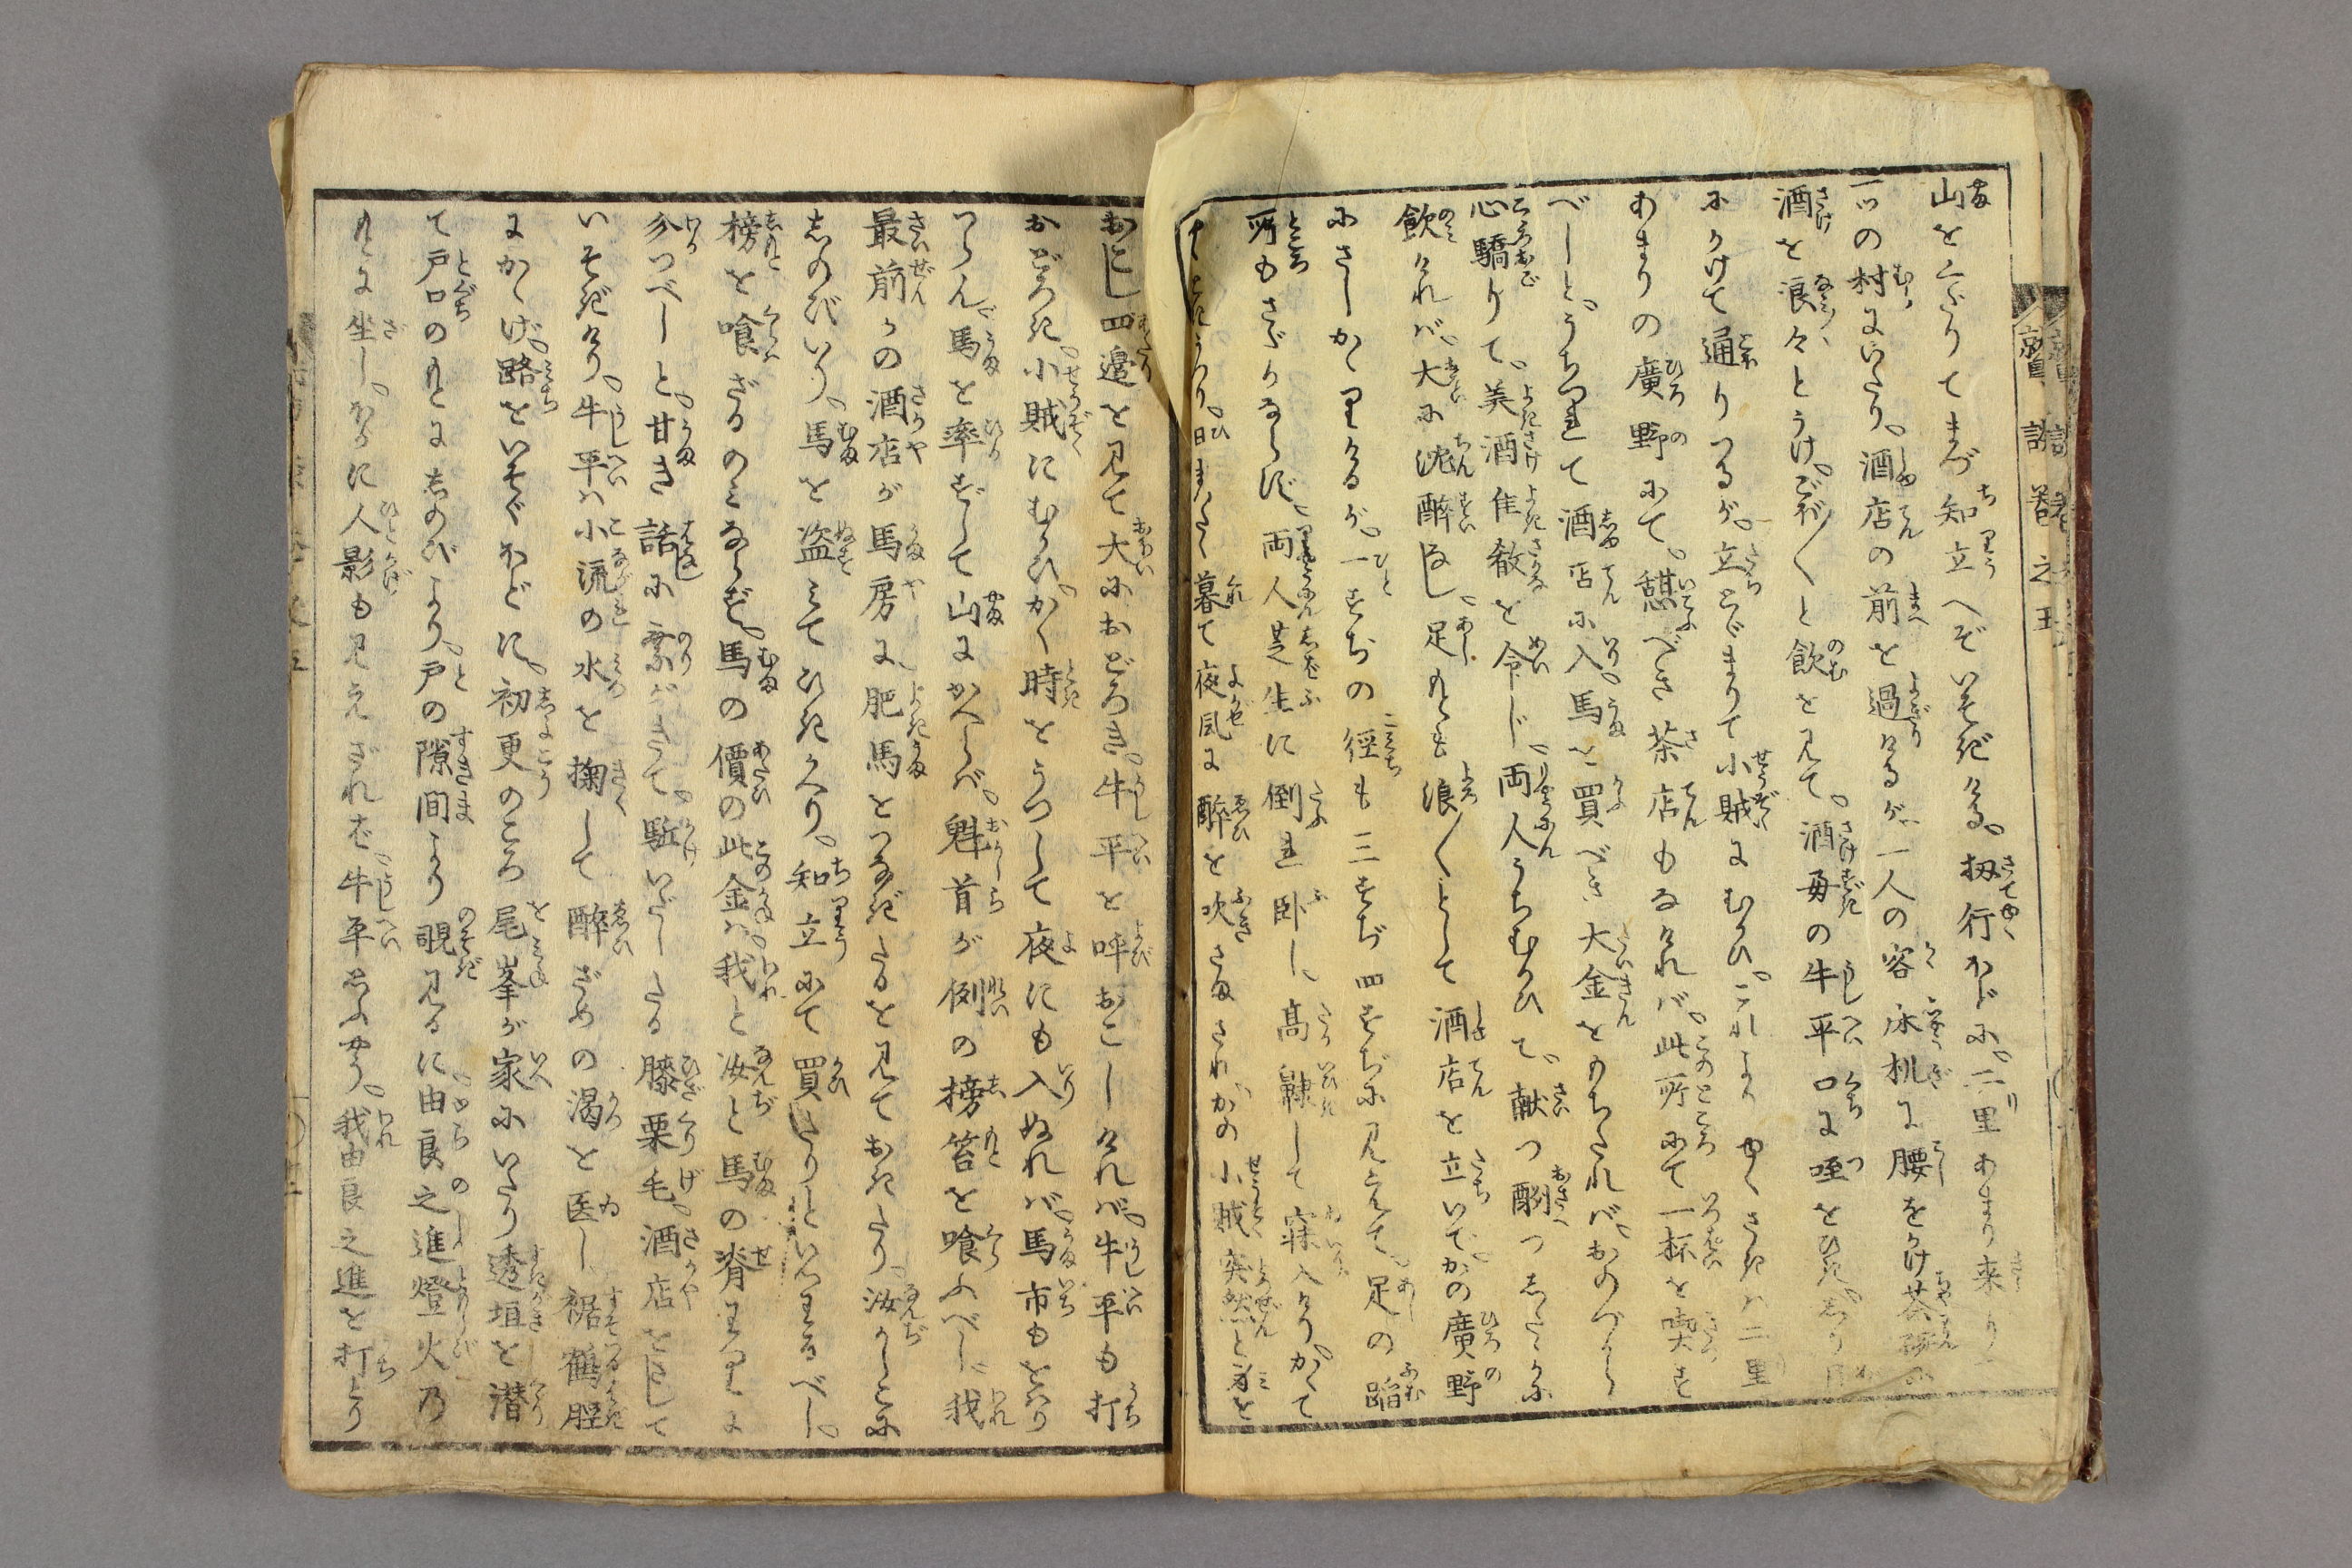 山をくだりてまづ知立へぞいそぎける。扨行かどに。二里あまり来り
一ツの村にいたり。酒店の前を過けるが。一人の客床机に腰をかけ茶碗に
酒を浪々とうけ。ごぼ〱と飲を見て。酒毎の牛平口に唾をひき。しり目
にかけて通りつるが。立どまりて小賊にむかひ。これよりゆくさきは二里
あまりの廣野にて。憇べき茶店もなければ。此所にて一杯を喫す
べしと。うちつれて酒店に入。馬を買べき大金をもちたれば。おのづから
心驕りて。美酒佳殽を令じ。両人うちむかひて。献つ酬つしたゝかに
飲ければ。大に沈酔なし。足もとも浪〱として酒店を立いで。かの廣野
にさしかゝりけるが。一すぢの徑も三すぢ四すぢに見えて。足の蹈
所もさだかならず。両人芝生に倒れ卧し。高鼾して寐入けり。かくて
日またく暮て夜風に酔を吹さまされ。かの小賊突然と身を
おこし四邉を見て大におどろき。牛平を呼おこしければ。牛平も打
おどろき。小賊にむかひ。かく時をうつして夜にも入ぬれば。馬市もをはり
つらん。馬を率ずして山にかへらば。魁首が例の榜笞を喰ふべし。我
最前かの酒店が馬房に。肥馬をつなぎたるを見ておきたり。汝かしこに
しのびいり。馬を盗みてひきかへり。知立にて買たりといつはるべし。
榜を喰ざるのみならず。馬の價の此金は。我と汝と馬の脊わりに
分つべしと。甘き話に乗がきて。駈いだしたる膝栗毛。酒店をさして
いそぎけり。牛平は小流の水を掬して酔ざめの渇を医し。裾鶴脛
にかゝげ。路をいそぐほどに。初更のころ尾峯が家にいたり透垣を潜
て戸口のもとにしのびより。戸の隙間より覗見るに。由良之進燈火乃
もとに坐し。ほかに人影も見えざれば。牛平思ふやう。我由良之進を打とり